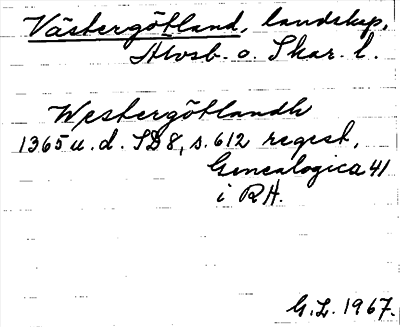 Västergötland, landskap,
Älvsb. o. Skar. l.
Westergötlandh
1365 u. d. SD 8, s. 612 regest,
Genealogica 41
i RA.
G. L. 1967.